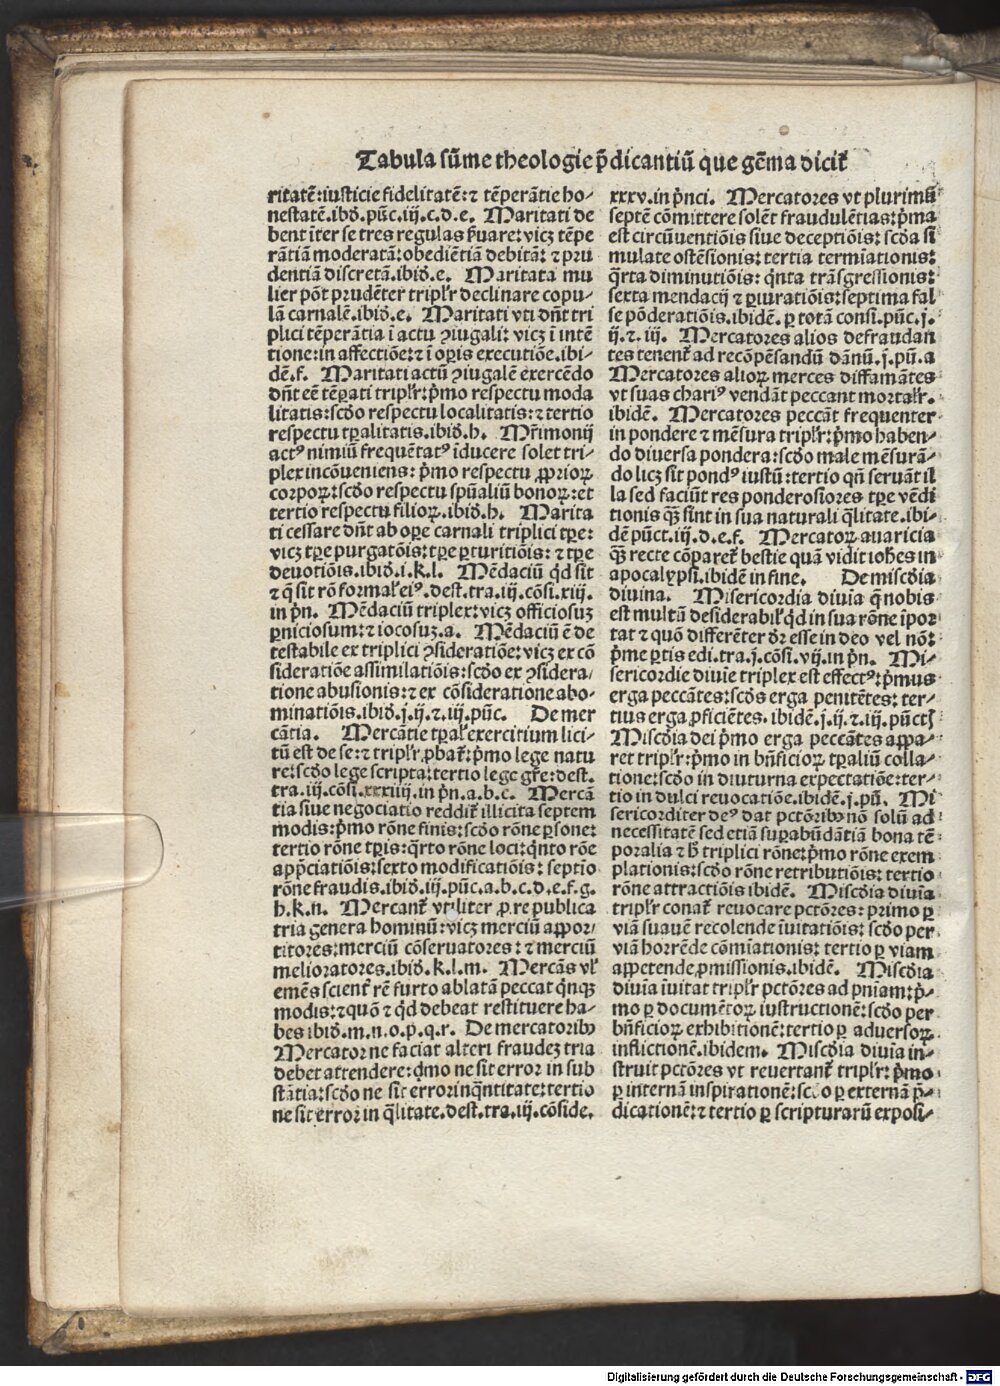 Tabula sũme theologie p̃dicantiũ que gẽma dicit᷑
ritatẽ:iusticie fidelitatẽ:⁊ tẽperãtie ho⸗
nestatẽ.ibiđ.pũc.iij.c.d.e. Maritati de
bent ĩter se tres regulas ẜuare:vicꝫ tẽpe
rãtiã moderatã:obediẽtiã debitã:⁊ pru
dentiã discretã.ibiđ.e. Maritata mu
lier põt prudẽter tripl'r declinare copu⸗
lã carnalẽ.ibiđ.e. Maritati vti dñt tri
plici tẽperãtia ĩ actu ꝯiugali:vicꝫ ĩ intẽ
tione:in affectiõe:⁊ ĩ oꝑis executiõe.ibi⸗
dẽ.f. Maritati actũ ꝯiugalẽ exercẽdo
dñt eẽ tẽꝑati tripl'r:p̃mo respectu moda
litatis:scđo respectu localitatis:⁊ tertio
respectu tꝑalitatis.ibiđ.h. Mr̃imonij
actꝰ nimiũ frequẽtatꝰ ĩducere solet tri⸗
plex incõueniens: p̃mo respectu ꝓprioꝝ
corpoꝝ:scđo respectu spũaliũ bonoꝝ:et
tertio respectu filioꝝ.ibiđ.h. Marita
ti cessare dñt ab oꝑe carnali triplici tꝑe:
vicꝫ tꝑe purgatõis:tꝑe ꝑturitiõis:⁊ tꝑe
deuotiõis.ibiđ.i.k.l. Mẽdaciũ qđ sit
⁊ q̃ sit rõ formal' eiꝰ.dest.tra.iij.cõsi.xiij.
in pñ. Mẽdaciũ triplex:vicꝫ officiosuꝫ
ꝑniciosum:⁊ iocosuꝫ.a. Mẽdaciũ ẽ de
testabile ex triplici ꝯsideratiõe:vicꝫ ex cõ
sideratiõe assimilatiõis:scđo ex ꝯsidera⸗
tione abusionis:⁊ ex cõsideratione abo⸗
minatiõis.ibiđ.j.ij.⁊.iij.pũc. De mer
cãtia. Mercãtie tꝑal' exercitium lici⸗
tũ est de se:⁊ tripl'r ꝓbat᷑:p̃mo lege natu
re:scđo lege scripta:tertio lege gr̃e:dest.
tra.iij.cõsi.xxxiiij.in pñ.a.b.c. Mercã
tia siue negociatio reddit᷑ illicita septem
modis:p̃mo rõne finis:scđo rõne ꝑsone:
tertio rõne tꝑis:q̃rto rõne loci:q̃nto rõe
app̃ciatiõis:sexto modificatiõis:septĩo
rõne fraudis.ibiđ.iij.pũc.a.b.c.d.e.f.g.
h.k.n. Mercant᷑ vtiliter ꝓ re publica
tria genera hominũ:vicꝫ merciũ appor⸗
titores:merciũ cõseruatores:⁊ merciũ
melioratores.ibiđ.k.l.m. Mercãs vl'
emẽs scient᷑ rẽ furto ablatã peccat q̃nqꝫ
modis:⁊ quõ ⁊ qđ debeat restituere ha⸗
bes ibiđ.m.n.o.p.q.r. De mercatoribꝰ
Mercator ne faciat alteri fraudeꝫ tria
debet attendere:p̃mo ne sit error in sub
stãtia:scđo ne sit error in q̃ntitate:tertio
ne sit error in q̃litate.dest.tra.iij.cõside.
xxxv.in p̃nci. Mercatores vt plurimũ
septẽ cõmittere solẽt fraudulẽtias:p̃ma
est circũuentiõis siue deceptiõis:scđa si
mulate ostẽsionis:tertia termiationis:
q̃rta diminutiõis:q̃nta trãsgressionis:
sexta mendacij ⁊ ꝑiuratiõis:septima fal
se põderatiõis.ibidẽ.ꝑ totã consi.pũc.j.
ij.⁊.iij. Mercatores alios defraudan
tes tenent᷑ ad recõpẽsandũ dãnũ.j.pũ.a
Mercatores alioꝝ merces diffamãtes
vt suas chariꝰ vendãt peccant mortal'r.
ibidẽ. Mercatores peccãt frequenter
in pondere ⁊ mẽsura tripl'r:p̃mo haben⸗
do diuersa pondera:scđo male mẽsurã⸗
do licꝫ sit pondꝰ iustũ:tertio qñ seruãt il
la sed faciũt res ponderosiores tꝑe vẽdi
tionis q̃ꝫ sint in sua naturali q̃litate.ibi⸗
dẽ pũct.iij.d.e.f. Mercatoꝝ auaricia
q̃ꝫ recte cõparet᷑ bestie quã vidit iohẽs in
apocalypsi.ibidẽ in fine. De miscđia
diuina. Misericordia diuia q̃ nobis
est multũ desiderabil' qđ in sua rõne ĩpor
tat ⁊ quõ differẽter dr̃ esse in deo vel nõ:
p̃me ꝑtis edi.tra.j.cõsi.vij.in pñ. Mi⸗
sericordie diuĩe triplex est effectꝰ:p̃mus
erga peccãtes:scđs erga penitẽtes:ter⸗
tius erga ꝓficiẽtes.ibidẽ.j.ij.⁊.iij.pũctꝭ
Miscđia dei p̃mo erga peccãtes appa⸗
ret tripl'r:p̃mo in bñficioꝝ tꝑaliũ colla⸗
tione:scđo in diuturna expectatiõe:ter⸗
tio in dulci reuocatiõe.ibidẽ.j.pũ. Mi
sericorditer deꝰ dat pctõribꝰ nõ solũ ad
necessitatẽ sed etiã suꝑabũdãtiã bona tẽ
poralia ⁊ h̃ triplici rõne:p̃mo rõne exem
plationis:scđo rõne retributiõis:tertio
rõne attractiõis ibidẽ. Miscđia diuia
tripl'r conat᷑ reuocare pctõres:primo ꝑ
viã suauẽ recolende ĩuitatiõis:scđo per
viã horrẽde cõmiationis:tertio ꝑ viam
appetende ꝓmissionis.ibidẽ. Miscđia
diuia ĩuitat tripl'r pctõres ad pñiam:p̃⸗
mo ꝑ documẽtoꝝ iustructionẽ:scđo per
bñficioꝝ exhibitionẽ:tertio ꝑ aduersoꝝ
inflictionẽ.ibidem. Miscđia diuia in⸗
struit pctõres vt reuertant᷑ tripl'r:p̃mo
ꝑ internã inspirationẽ:scđo ꝑ externã p̃⸗
dicationẽ:⁊ tertio ꝑ scripturarũ exposi⸗
Digitalisierung gefördert durch die Deutsche Forschungsgemeinschaft - DFG